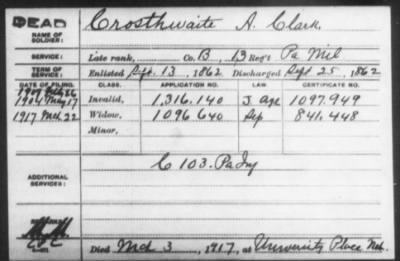 DEAD
NAME OF SOLDIER:
Crosthwaite A. Clark
SERVICE:
Late rank, Co. B, 13 Reg't Pa Mil
TERM OF SERVICE:
Enlisted Sept. 13, 1862 Discharged Sept 25, 1862
DATE OF FILING. CLASS. APPLICATION NO. LAW. CERTIFICATE NO.
1904 May 17 Invalid, 1,316,140 J. Age 1097.949
1917 Mch 22 Widow, 1096640 Sep 841,448
Minor,
C 103. Pa Inf
ADDITIONAL SERVICES:
REMARKS:
Died Mch 3, 1917, at University Place Neb.